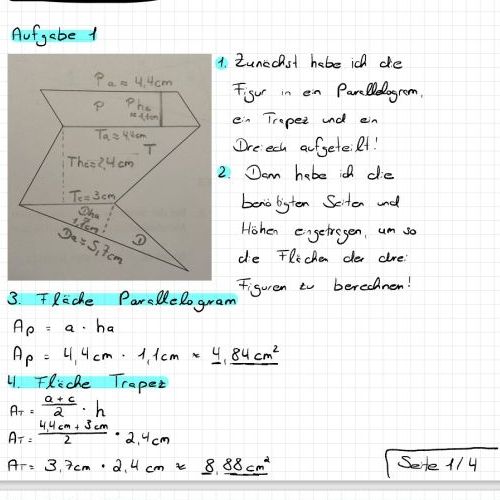 Aufgabe 1
Pa ≈ 4,4cm
P Pha ≈ 1,1cm
Ta ≈ 4,4cm
T
Thc = 2,4cm
Tc = 3cm
Dha 1,7cm
D
Da = 5,7cm
1. Zunächst habe ich die
Figur in ein Parallelogram,
ein Trapez und ein
Dreieck aufgeteilt!
2. Dann habe ich die
benötigten Seiten und
Höhen eingetragen, um so
die Flächen der drei
Figuren zu berechnen!
3. Fläche Parallelogram
Ap = a · ha
Ap = 4,4cm · 1,1cm ≈ 4,84cm²
4. Fläche Trapez
AT = a+c/2 · h
AT = 4,4cm + 3cm/2 · 2,4cm
AT = 3,7cm · 2,4cm ≈ 8,88cm²
Seite 1/4